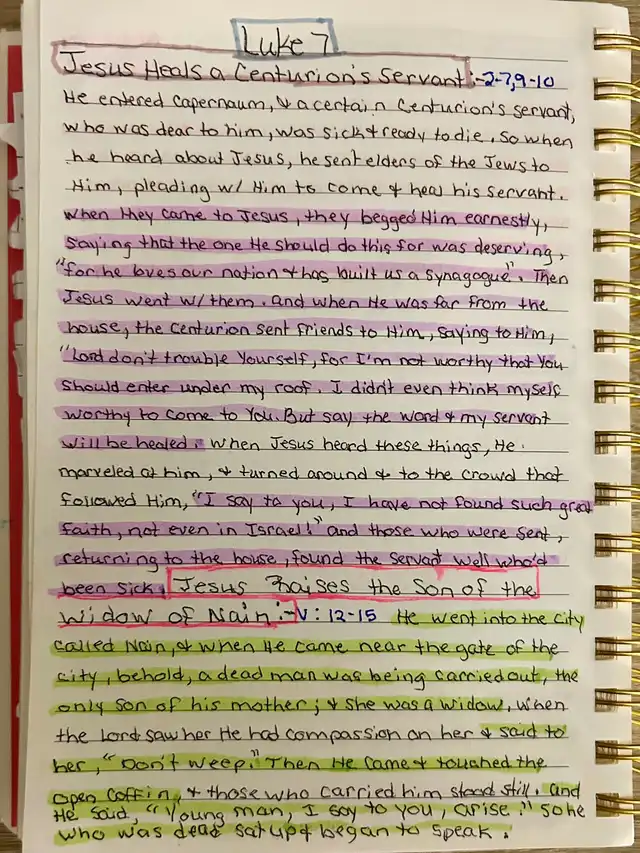 Luke 7
Jesus Heals a Centurion's Servant:-2-7,9-10
He entered Capernaum, & a certain Centurion's servant,
who was dear to him, was sick & ready to die. So when
he heard about Jesus, he sent elders of the Jews to
Him, pleading w/ Him to come & heal his servant.
When they came to Jesus, they begged Him earnestly,
saying that the one He should do this for was deserving,
"for he loves our nation & has built us a synagogue". Then
Jesus went w/ them. And when He was far from the
house, the Centurion sent friends to Him, saying to Him,
"Lord don't trouble Yourself, for I'm not worthy that You
should enter under my roof. I didn't even think myself
worthy to come to You. But say the word & my servant
will be healed. When Jesus heard these things, He
marveled at him, & turned around & to the crowd that
followed Him, "I say to you, I have not found such great
faith, not even in Israel!" and those who were sent,
returning to the house, found the servant well who'd
been sick. Jesus Raises the Son of the
Widow of Nain:-V: 12-15 He went into the city
called Nain, & when He came near the gate of the
city, behold, a dead man was being carried out, the
only son of his mother; & she was a widow, when
the Lord saw her He had compassion on her & said to
her, "Don't weep." Then He came & touched the
open coffin, & those who carried him stood still. and
He said, "Young man, I say to you, arise." So he
who was dead sat up & began to speak.